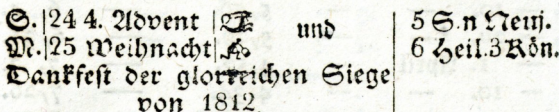 S. 24 4. Advent und 5 S. n Neuj.
M. 25 Weihnacht 6 Heil. 3 Kön.
Dankfest der glorreichen Siege
von 1812